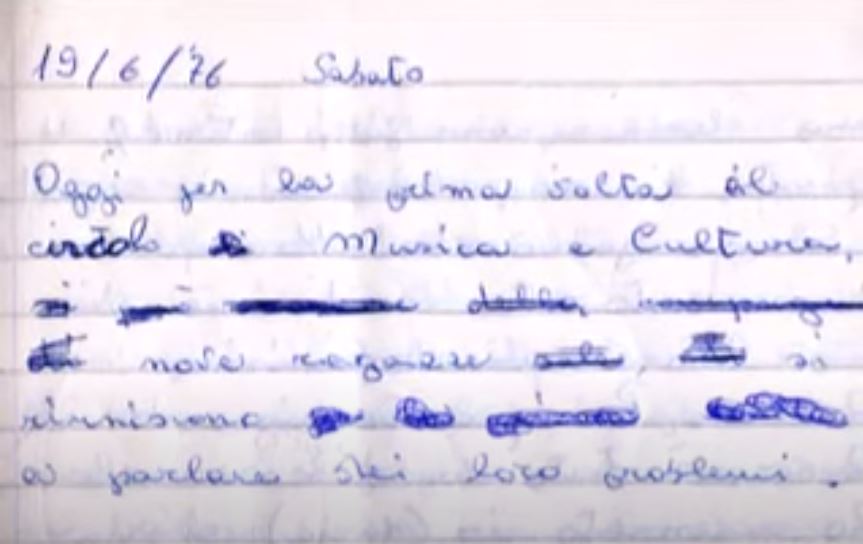 19/6/'76 Sabato
Oggi per la prima volta al
circolo Musica e Cultura,
nove ragazze si
riuniscono
a parlare dei loro problemi.